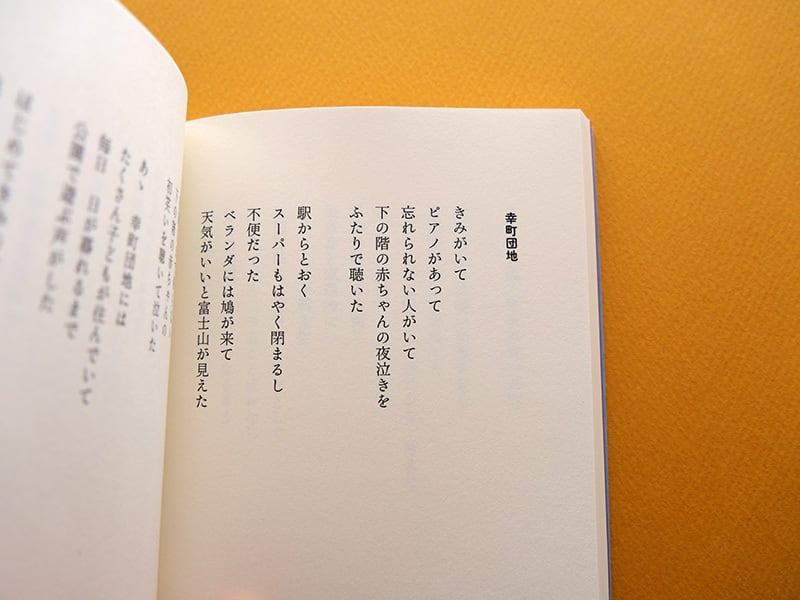 幸町団地
きみがいて
ピアノがあって
忘れられない人がいて
下の階の赤ちゃんの夜泣きを
ふたりで聴いた
駅からとおく
スーパーもはやく閉まるし
不便だった
ベランダには鳩が来て
天気がいいと富士山が見えた
初笑いを聴いて泣いた
あゝ 幸町団地には
たくさん子どもが住んでいて
毎日 日が暮れるまで
公園で遊ぶ声がした